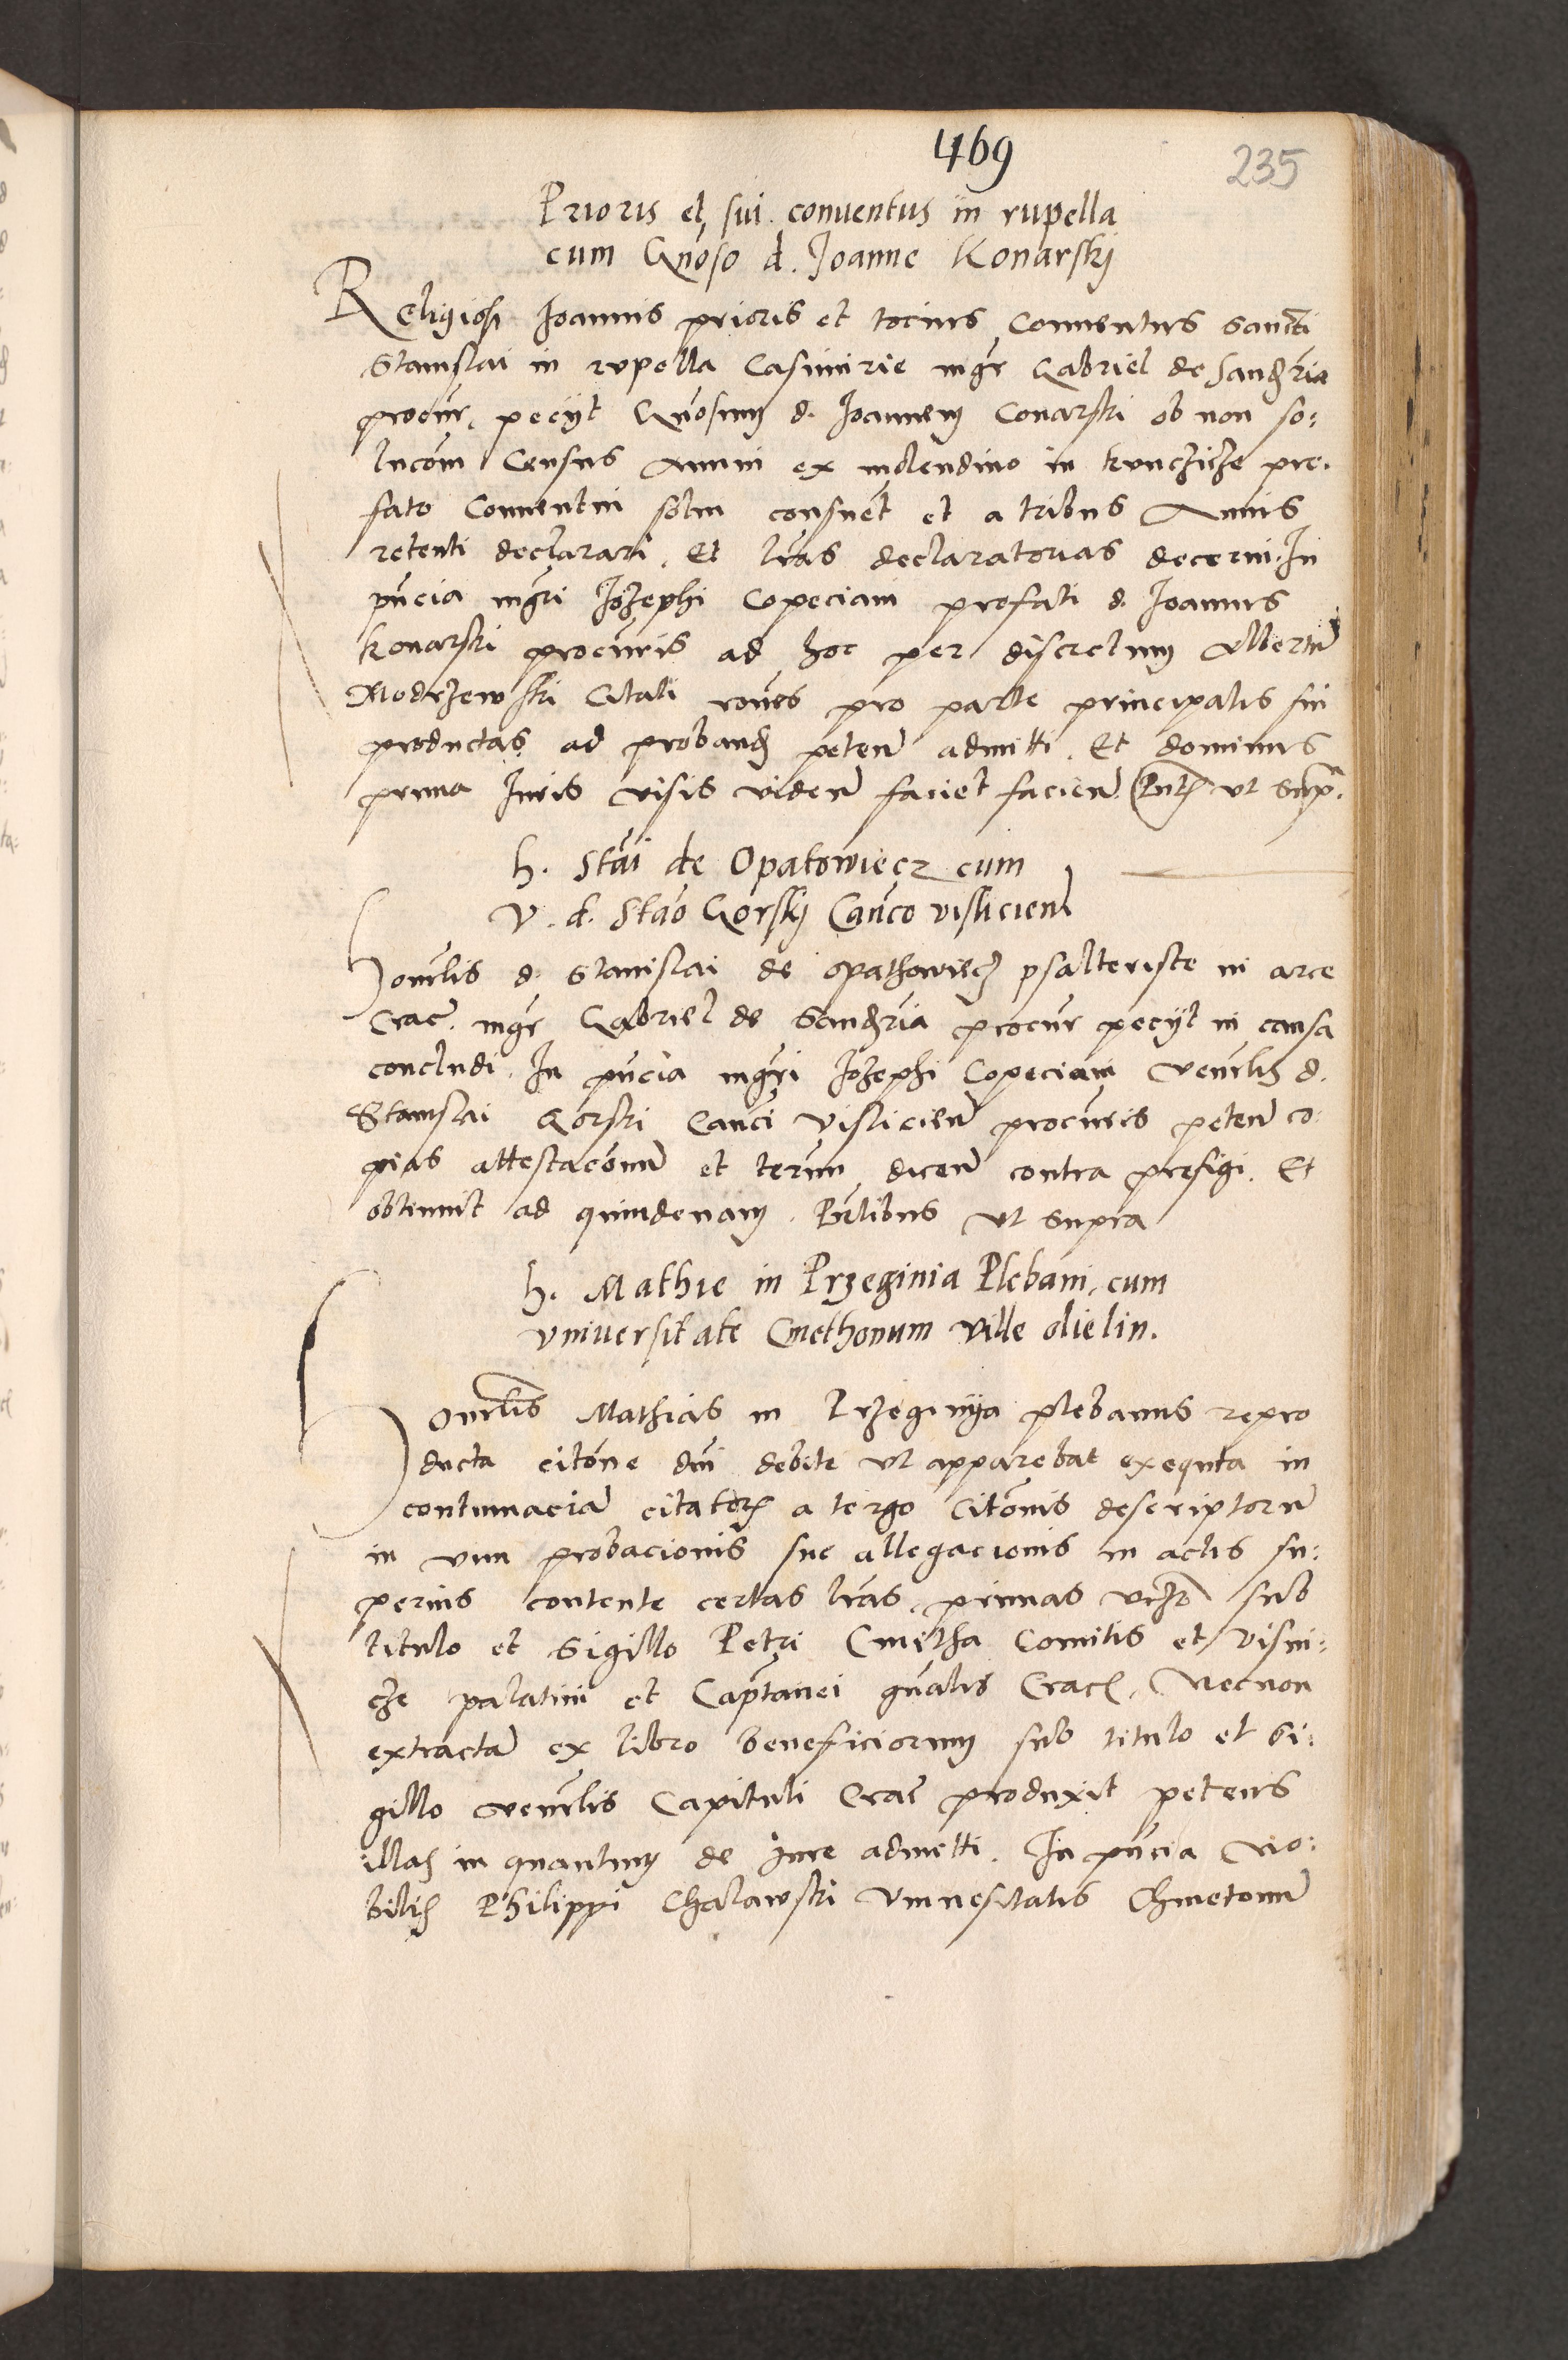 469
235
Prioris et sui conventus in rupella
cum Gnoso d. Joanne Konarskj
Religiosi Joannis prioris et tocius Conventus Sancti
Stanislai in rupella Casimirie mgr Gabriel de Sandzria
procur, peciit Gnosum d. Joannem Conarski ob non so:
lucom Census Annui ex molendino in kunczicze pre.
fato Conventui solui consuet et a tribus Annis
retenti declarari. Et lras declaratorias decerni. In
pncia mgri Jozephi Copeciani prefati d. Joannis
konarski procuris ad hoc per discretum Albertu
Modrzewski Citati rones pro parte principalis sui
productas ad proband peten admitti. Et dominus
prima Juris visis viden faciet facien. Pntb. ut supra.
h. Stai de Opatowiecz cum
V. d. Stao Gorskj Canco vislicien
Honrlis d. Stanislai de opathowiecz psalteriste in arce
Crac. mgr Gabriel de Sandzria procur peciit in causa
concludi. In pncia mgri Jozephi Copeciani Venrlis d.
Stanislai Gorski Canci Vislicien procuris peten co:
pias attestacionu et termin dicen contra prefigi. Et
obtinuit ad quindenam. Pntibus ut supra
h. Mathie in Przeginia Plebani, cum
universitate Cmethonum ville olielin.
Honrlis Mathias in Przeginya plebanus repro
ducta citone dni debite ut apparebat exequta in
contumacia citator a tergo Citonis descriptoru
in vim probacionis sue allegacionis in actis su:
perius contente certas lras, primas sub
titulo et Sigillo Petri Cmitha Comitis et Visni:
cze palatini et Captanei gnalis Crac. Necnon
extracta ex libro beneficiorum sub titulo et Si:
gillo venrlis Capituli Crac produxit petens
illas in quantum de Jure admitti. In pncia No:
bilis Philippi Chalawski Vninesitatis Chmetonu